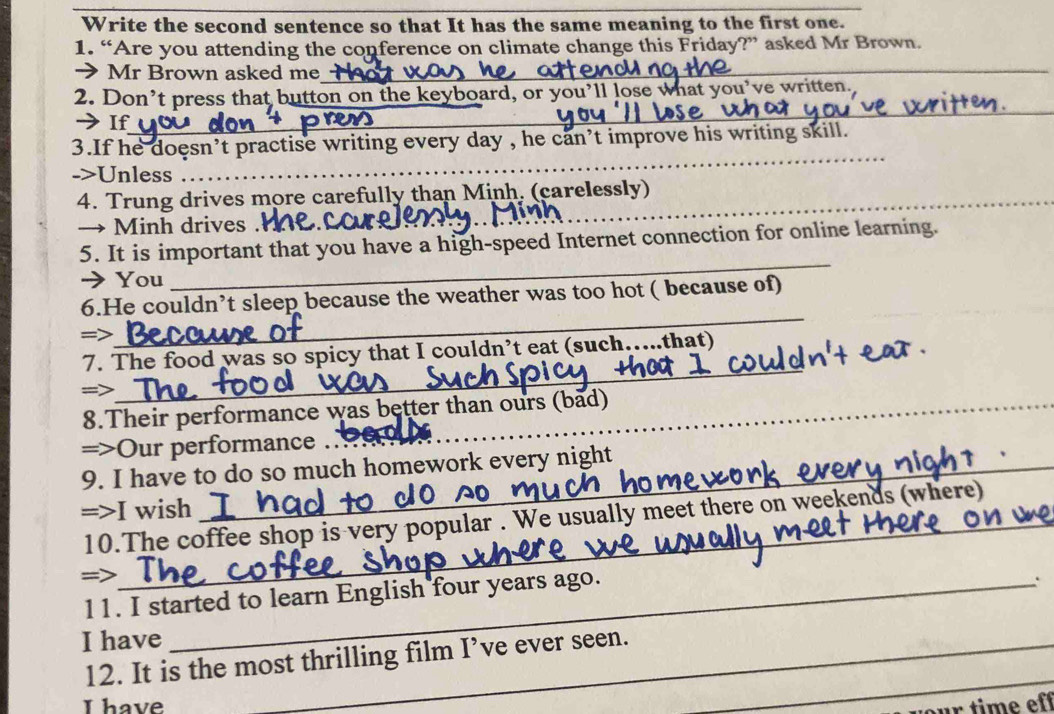 Write the second sentence so that It has the same meaning to the first one.
1. “Are you attending the conference on climate change this Friday?” asked Mr Brown.
→ Mr Brown asked me that was he attending the
2. Don’t press that button on the keyboard, or you’ll lose what you’ve written.
→ If you don't press you'll lose what you've written.
3.If he doesn’t practise writing every day , he can’t improve his writing skill.
->Unless
4. Trung drives more carefully than Minh. (carelessly)
→ Minh drives the carelessly Minh
5. It is important that you have a high-speed Internet connection for online learning.
→ You
6.He couldn’t sleep because the weather was too hot ( because of)
=> Because of
7. The food was so spicy that I couldn’t eat (such…..that)
=> The food was such spicy that I couldn't eat.
8.Their performance was better than ours (bad)
=>Our performance
9. I have to do so much homework every night
=>I wish I had to do so much homework every night.
10.The coffee shop is very popular . We usually meet there on weekends (where)
=> The coffee shop where we usually meet there on we
11. I started to learn English four years ago.
I have
12. It is the most thrilling film I’ve ever seen.
I have
time eff